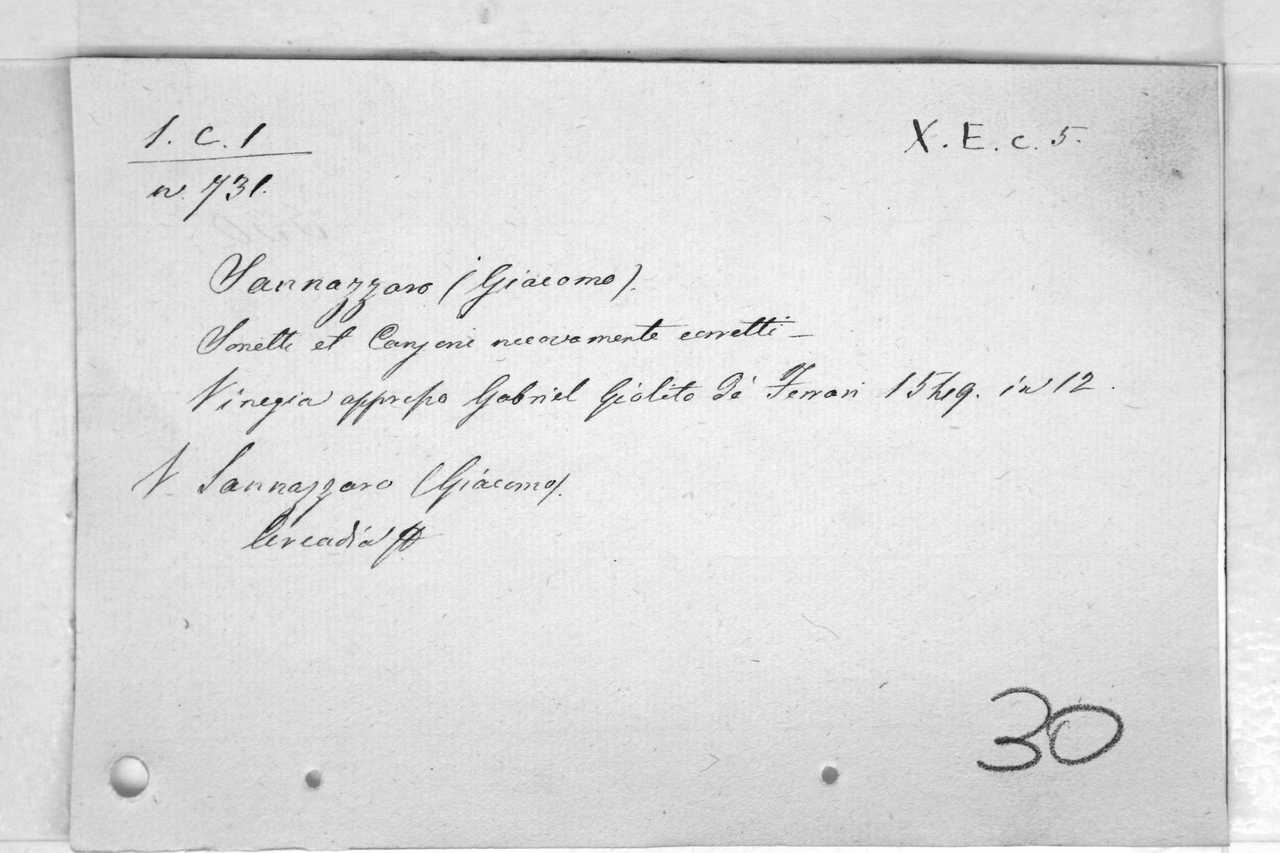 1. C. 1
X. E. c. 5.
n. 731.
Sannazzaro (Giacomo).
Sonetti et Canzoni novamente corretti –
Vinegia appresso Gabriel Giolito de Ferrari 1549. in 12.
V Sannazzaro (Giacomo).
Arcadia
30